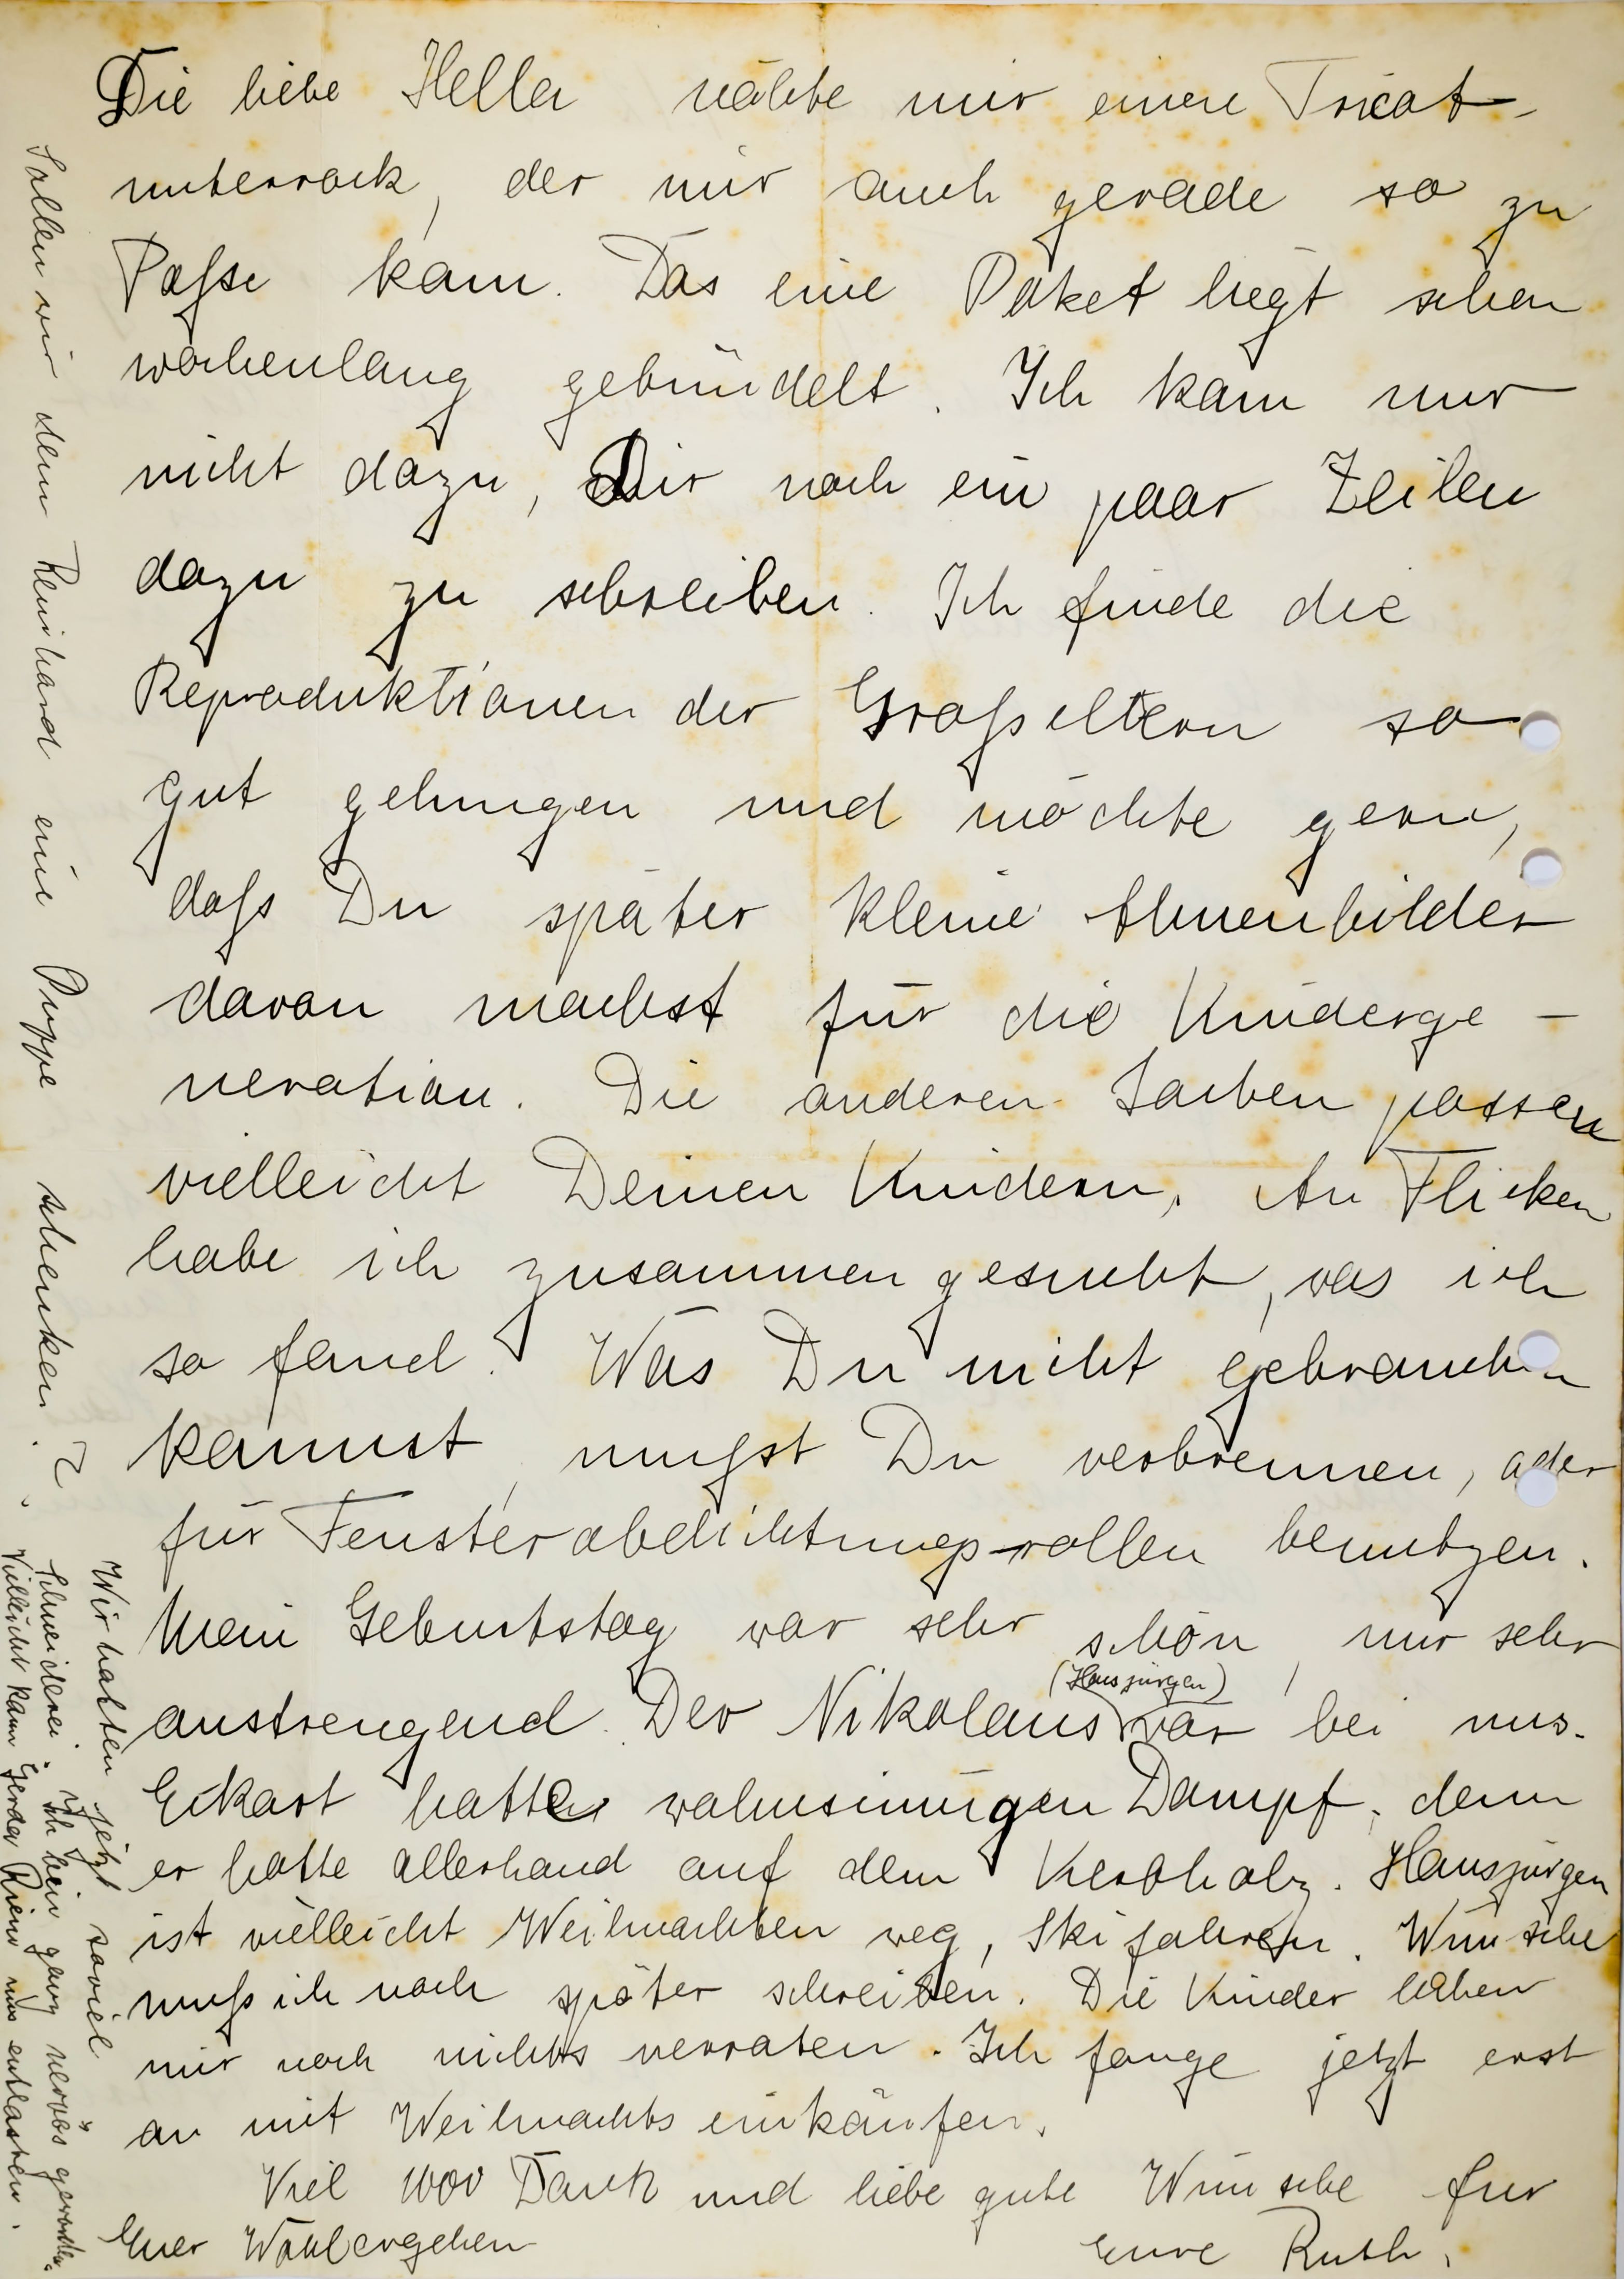 Die liebe Hella nähte mir einen Tricot-
unterrock, der mir auch gerade so zu
Paſse kam. Das eine Paket liegt schon
wochenlang gebündelt. Ich kam nur
nicht dazu, Dir noch ein paar Zeilen
dazu zu schreiben. Ich finde die
Reproduktionen der Groſseltern so
gut gelungen und möchte gern,
daſs Du später kleine Ahnenbilder
davon machst für die Kinderge-
neration. Die anderen Sachen passen
vielleicht Deinen Kindern. An Flicken
habe ich zusammengesucht, was ich
so fand. Was Du nicht gebrauchen
kannst, muſst Du verbrennen, oder
für Fensterabdichtungsrollen benutzen.
Mein Geburtstag war sehr schön, nur sehr
(Hansjürgen)
anstrengend. Der Nikolaus war bei uns.
Eckart hatte wahnsinnigen Dampf, denn
er hatte allerhand auf dem Kerbholz. Hansjürgen
ist vielleicht Weihnachten weg, Ski fahren. Wünsche
muſs ich noch später schreiben. Die Kinder haben
mir noch nichts verraten. Ich fange jetzt erst
an mit Weihnachtseinkäufen.
Viel 1000 Dank und liebe gute Wünsche für
Euer Wohlergehen Eure Ruth.
Sollen wir dem Reinhard eine Puppe schenken?
Wir hatten jetzt soviel
Schneiderei. Ich bin ganz nervös geworden.
Vielleicht kann Gerda Riens uns entlasten.